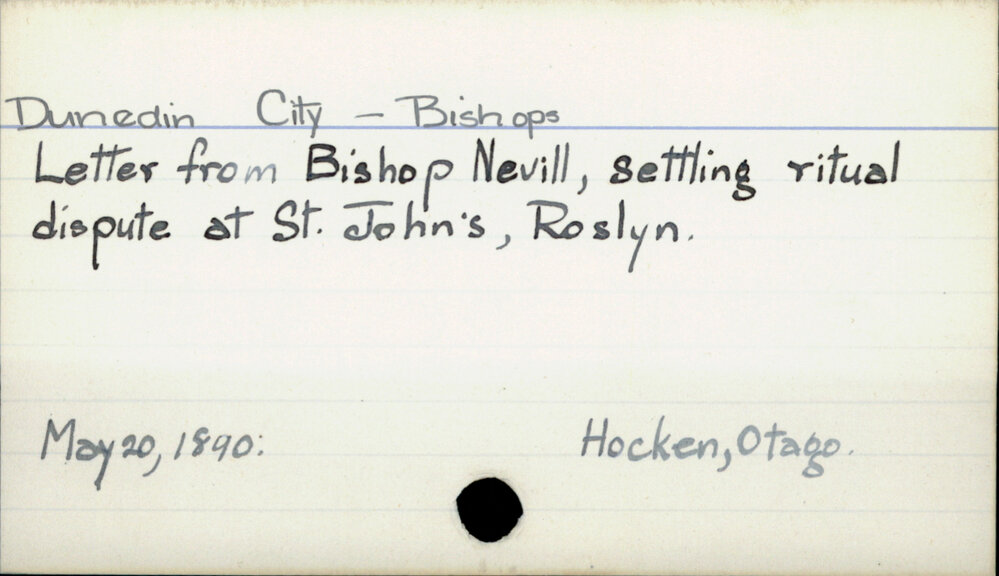 Dunedin City - Bishops
Letter from Bishop Nevill, settling ritual
dispute at St. John's, Roslyn.
May 20, 1890:
Hocken, Otago.